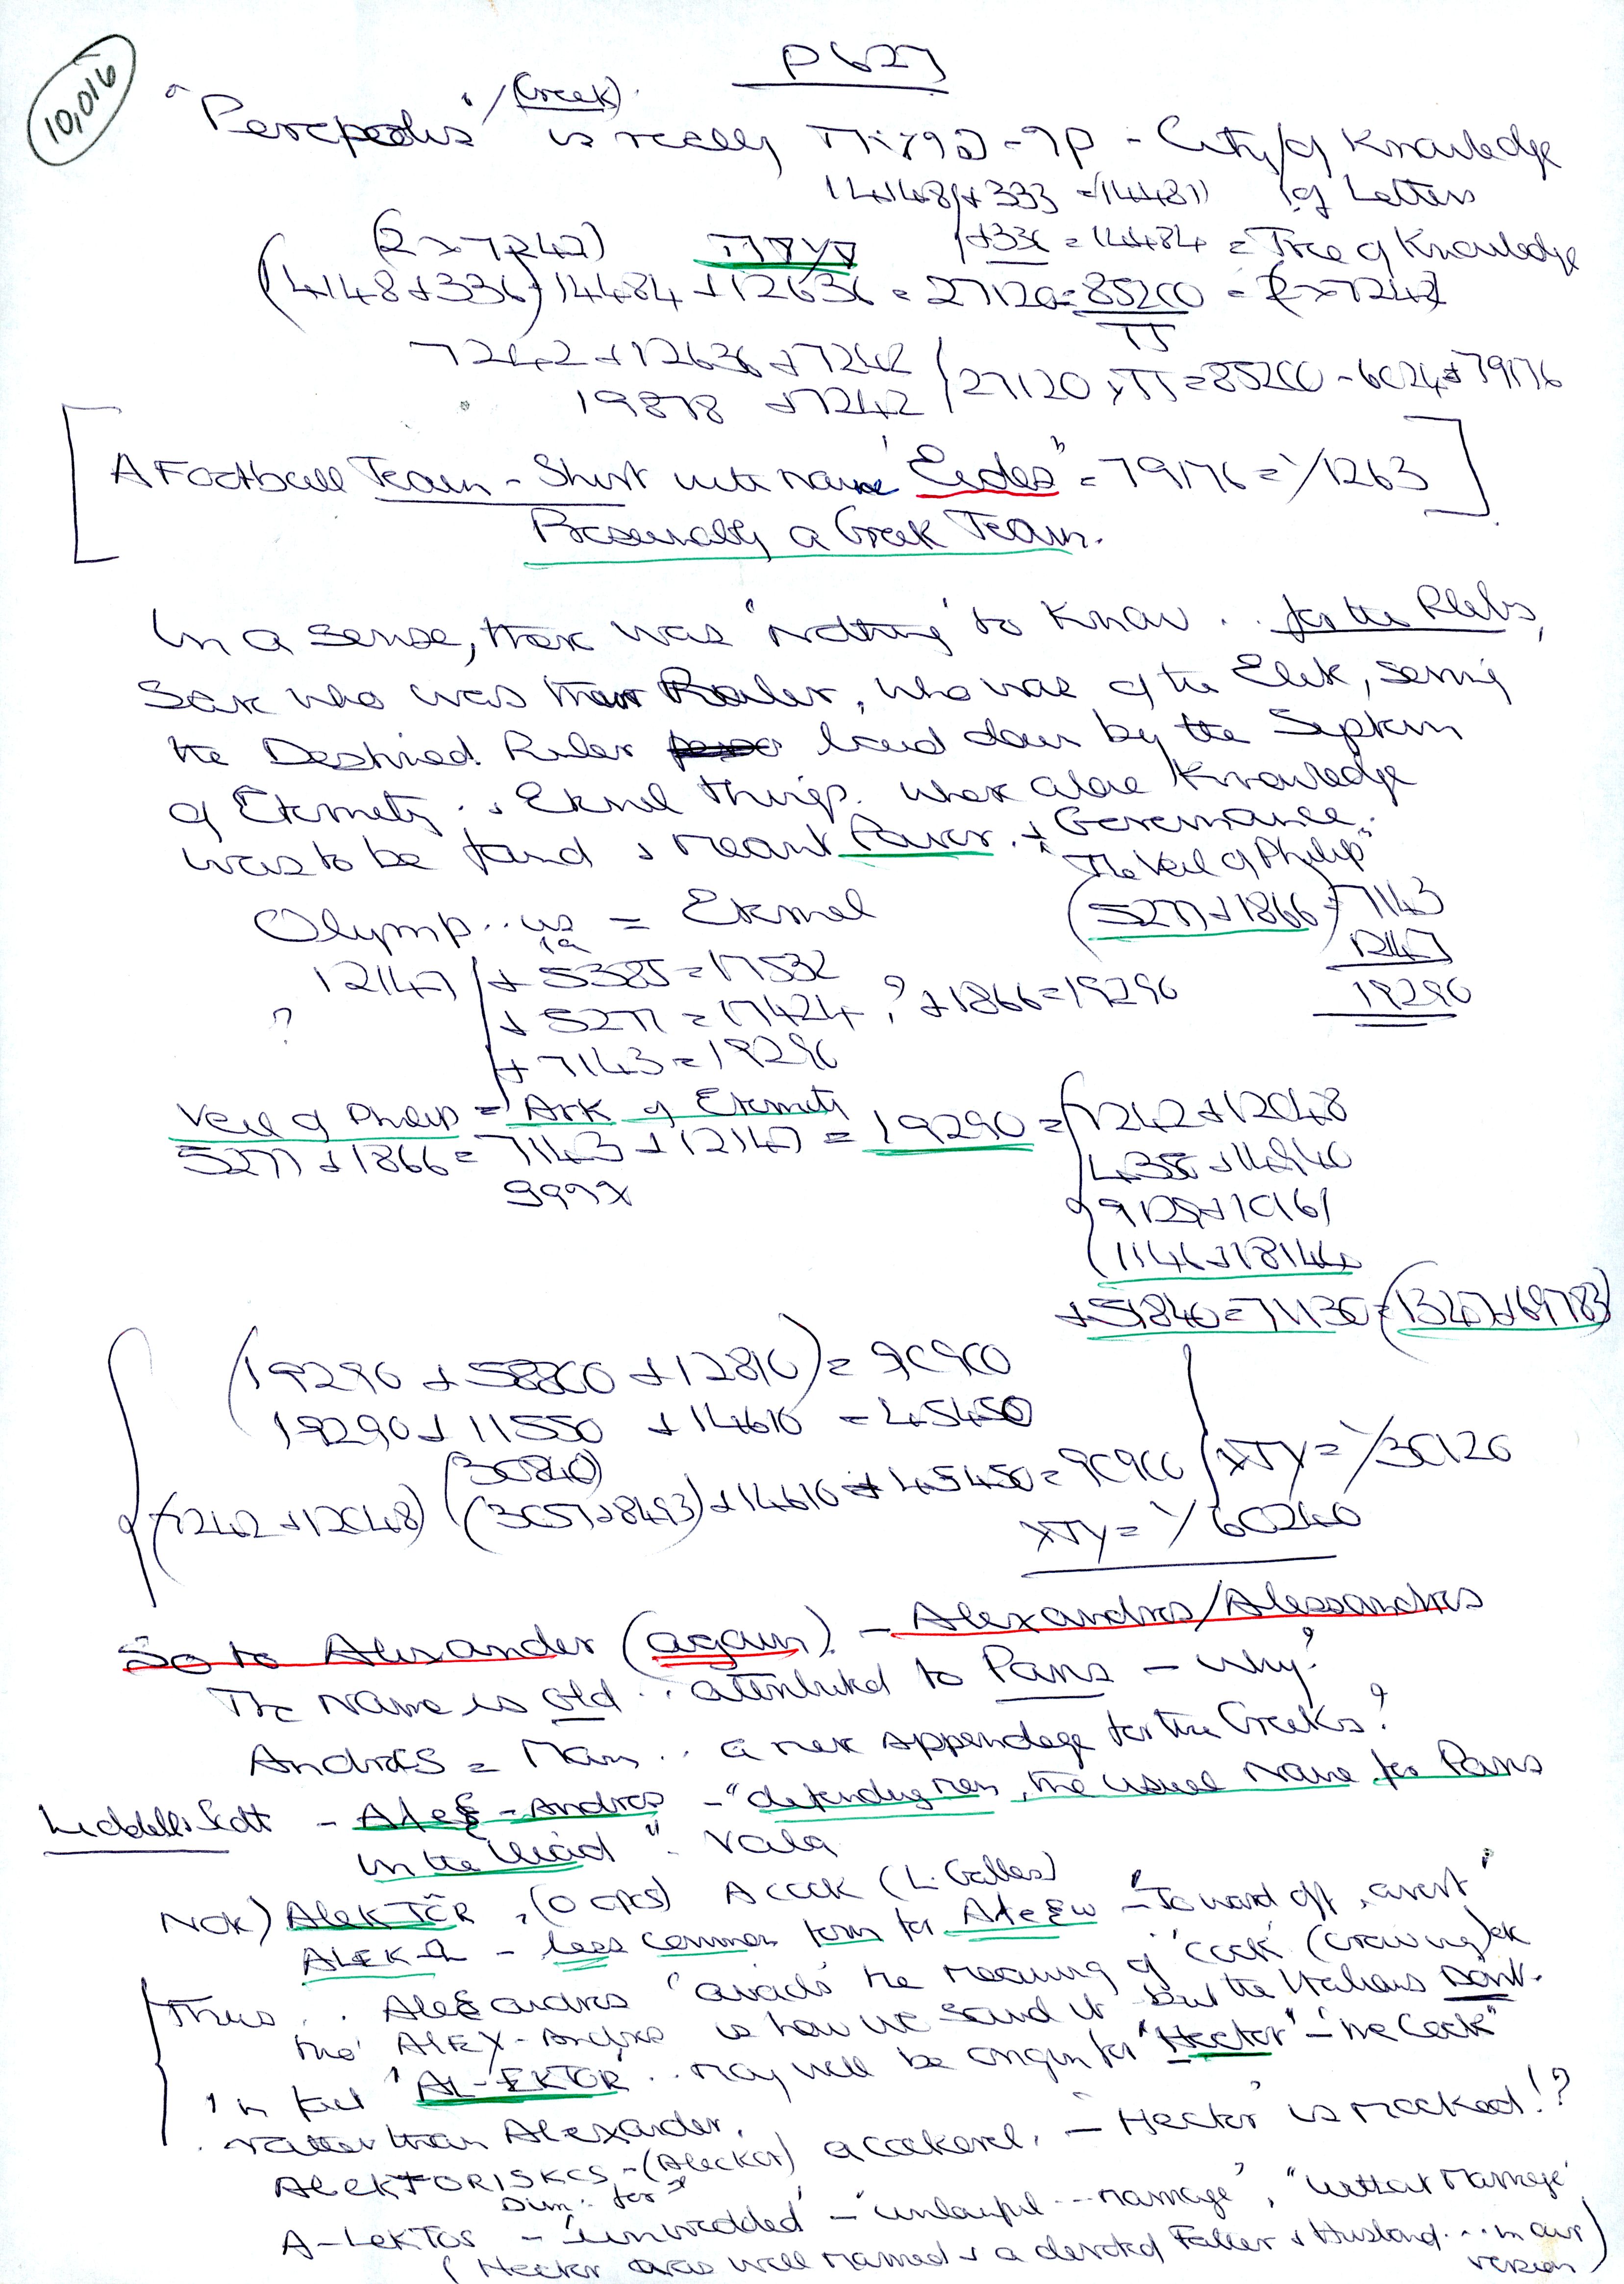 10,016
P627
"Persepolis" / (Greek) is really - City/of Knowledge
14148 + 333 = (14481) of Letters
(2 x 7242) + 336 = 14484 = Tree of Knowledge
(4148 + 336) 14484 + 12636 = 27120 = 85200 = (2 x 7242)
7242 + 12636 + 7242
19878 + 7242 / 27120 x π = 85200 - 6024 = 79176
[A Football Team - Shirt with name "Eudes" = 79176 = 1/1263]
Presumably a Greek Team.
In a sense, there was 'nothing' to know .. for the Plebs,
save who was their Ruler, who was of the Elite, serving
the Destined Ruler laid down by the
of Eternity .. Eternal things. where alone Knowledge
was to be found & meant Power. + Governance.
"The Veil of Philip"
Olymp..us = Eternal (5277 + 1866) = 7143
ia 12147
12147 + 5385 = 17532 19290
? + 5277 = 17424, ? + 1866 = 19290
+ 7143 = 19290
Veil of Philip = Ark of Eternity
5277 + 1866 = 7143 + 12147 = 19290 = 7242 + 12048
999x 4350 + 14940
9129 + 10161
1146 + 18144
+ 51840 = 71130 = (1347 + 69783)
(19290 + 58800 + 12810) = 90900
19290 + 11550 + 14610 = 45450
(30840)
(7242 + 12048) (3057 + 8493) + 14610 + 45450 = 90900 xπy = 1/30120
xπy = 1/60240
So to Alexander (again). - Alexandros/Alessandros
The Name is old .. attributed to Paris - why?
Andros = Man .. a new appendage for the Greeks?
Liddell & Scott - Aleξ-Andros - "defending men, the usual name for Paris
in the Iliad".
Note) ALEKTOR, A cock (L. Gallus)
ALEKΩ - less common form for Aleξw - "To ward off, avert"
Thus .. Aleξandros 'avoids' the meaning of 'cock' (crowing) etc
tho' ALEX-Andros is how we sound it but the Italians Don't.
In fact 'AL-EKTOR' .. may well be origin for "Hector" - "the Cock"
rather than Alexander.
ALEKTORISKOS - (Alector) a cockerel. - 'Hector' is mocked!?
Dim: for
A-LEKTOS - 'unwedded' - 'unlawful ... marriage', "without marriage'
(Hector was well married & a devoted Father & Husband ... in our
version)